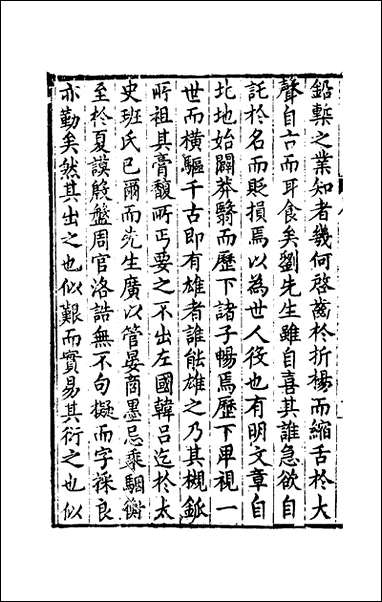 鉛槧之業知者幾何啓齒於折楊而縮舌於大
聲自古而耳食矣劉先生雖自喜其誰急欲自
託於名而貶損焉以為世人役也有明文章自
北地始闢莽翳而歷下諸子暢焉歷下卑視一
世而橫驅千古即有雄者誰能雄之乃其槻鈲
所祖其膏馥所丐要之不出左國韓呂迄於太
史班氏已爾而先生廣以管晏商墨忌乘駰衡
至於夏謨殷盤周官洛誥無不句擬而字採良
亦勤矣然其出之也似艱而實易其衍之也似